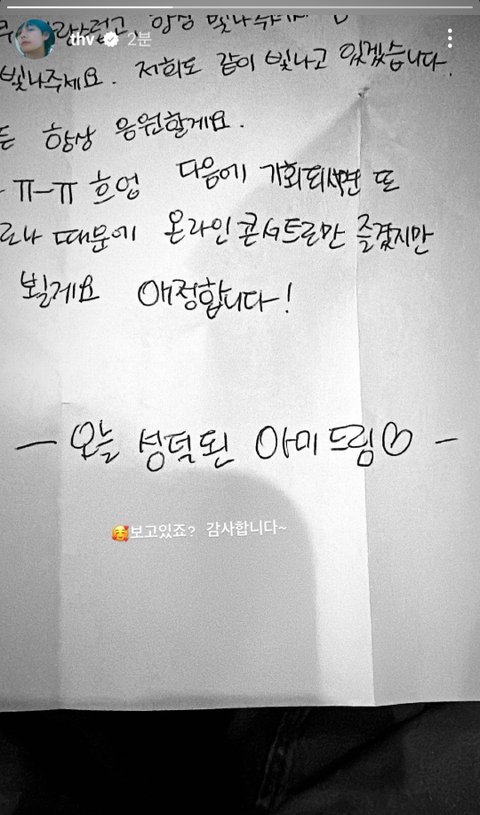 thv 2분
빛나주세요. 저희도 같이 빛나고 있겠습니다!
항상 응원할게요.
ㅠ-ㅠ 흐엉 다음에 기회되시면 또
로나 때문에 온라인 콘서트로만 즐겼지만
뵐게요 애정합니다!
- 오늘 성덕된 아미 드림♡ -
🥰보고있죠? 감사합니다~